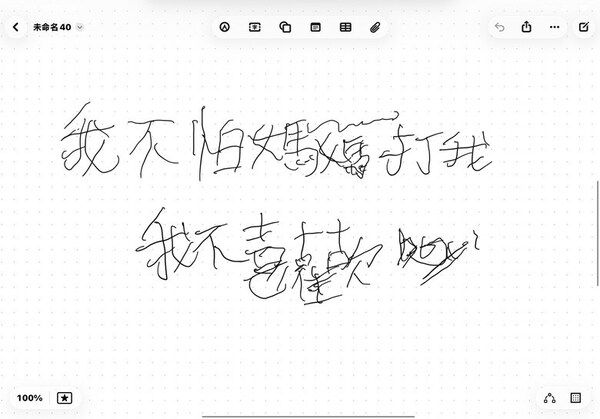 未命名 40
我不怕媽媽打我
我不喜歡
100%